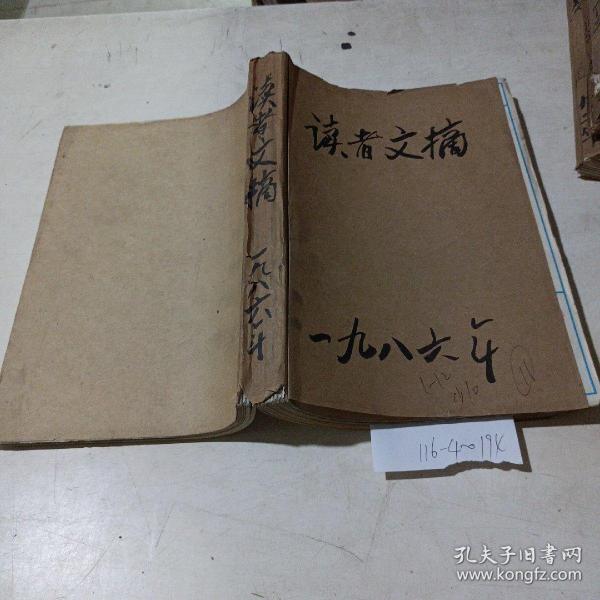 读者文摘
一九八六年
读者文摘
一九八六年
1-12
116-4~19K
孔夫子旧书网
www.kongfz.com